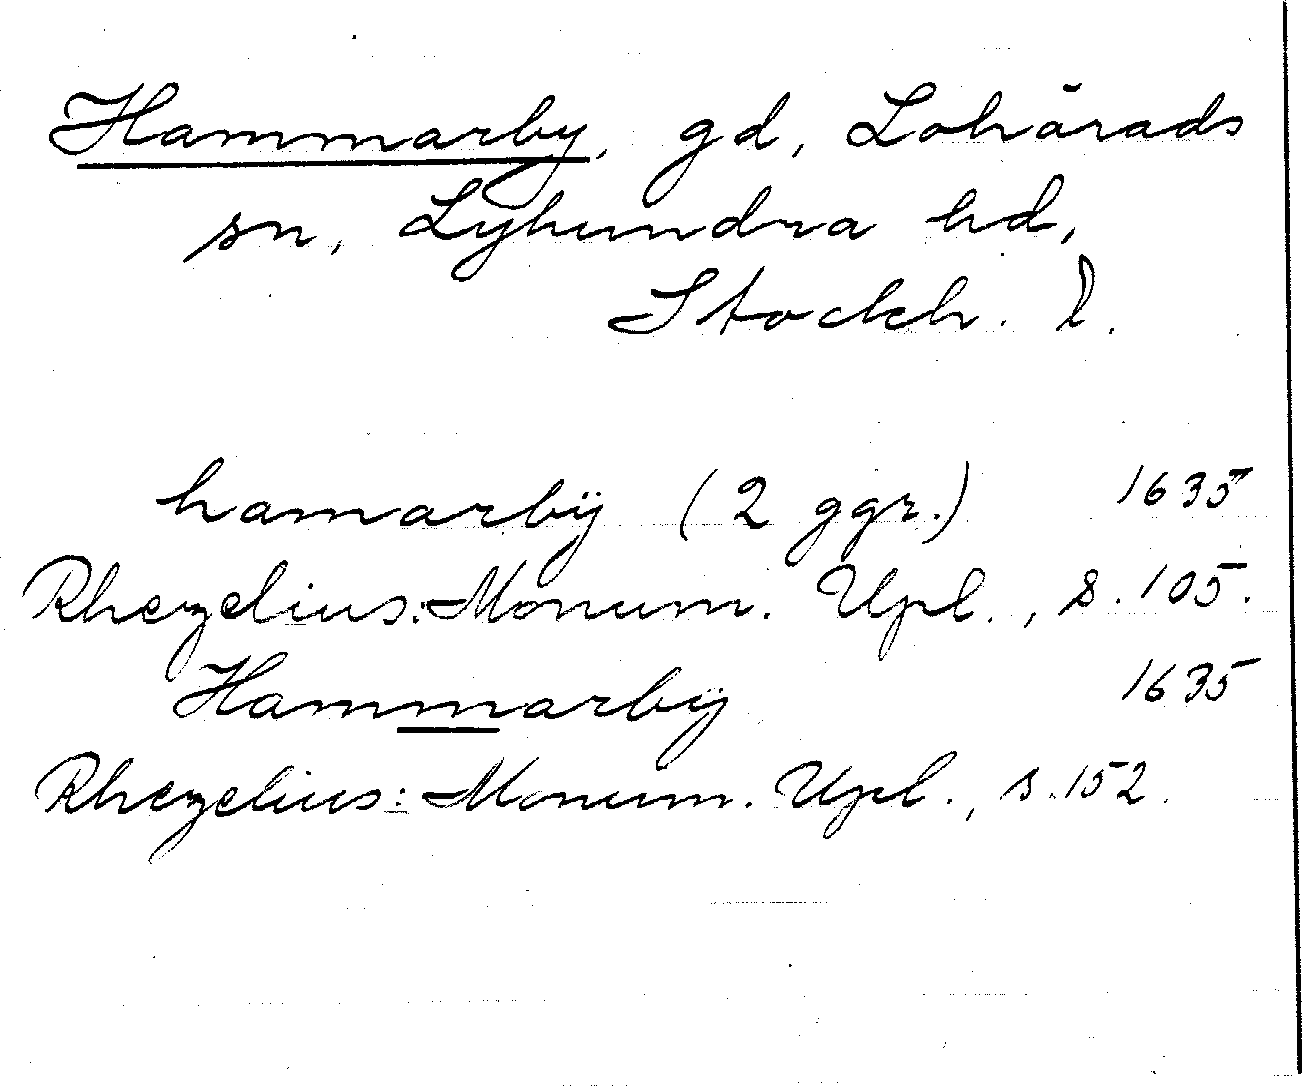 Hammarby, gd, Lohärads
sn, Lyhundra hd,
Stockh. l.
hamarbÿ (2 ggr.) 1635
Rhezelius: Monum. Upl., s. 105.
Hammarbÿ 1635
Rhezelius: Monum. Upl., s. 152.